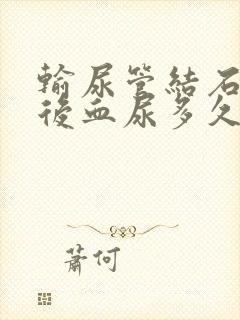 輸尿管結石
後血尿多久
蕭何